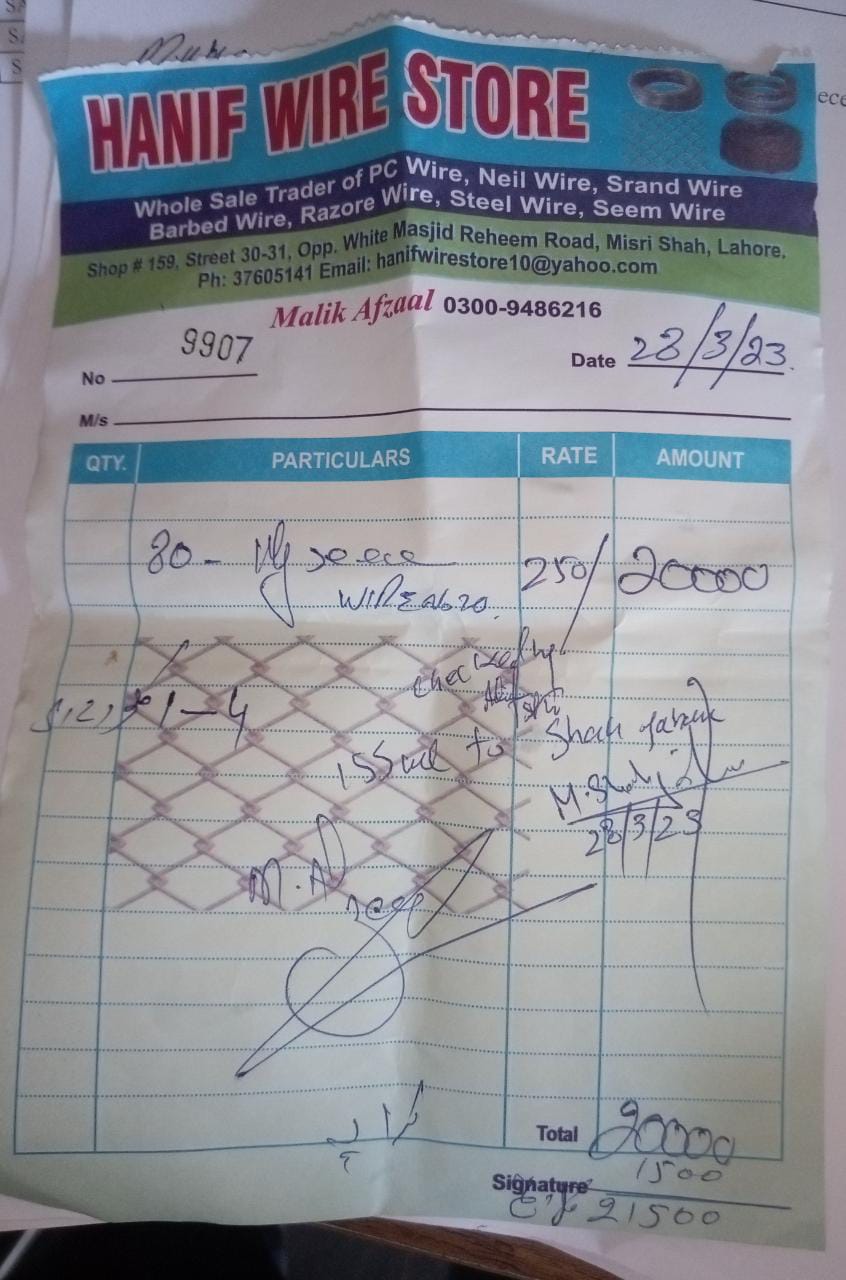 HANIF WIRE STORE
Whole Sale Trader of PC Wire, Neil Wire, Srand Wire
Barbed Wire, Razore Wire, Steel Wire, Seem Wire
Shop # 159, Street 30-31, Opp. White Masjid Reheem Road, Misri Shah, Lahore.
Ph: 37605141 Email: hanifwirestore10@yahoo.com
Malik Afzaal 0300-9486216
No 9907
Date 28/3/23.
M/s
QTY. PARTICULARS RATE AMOUNT
80 - Kg 250/ 20000
WIRE
checked by
1-4
to Shah
28/3/23
Total 20000
1500
Signature
21500